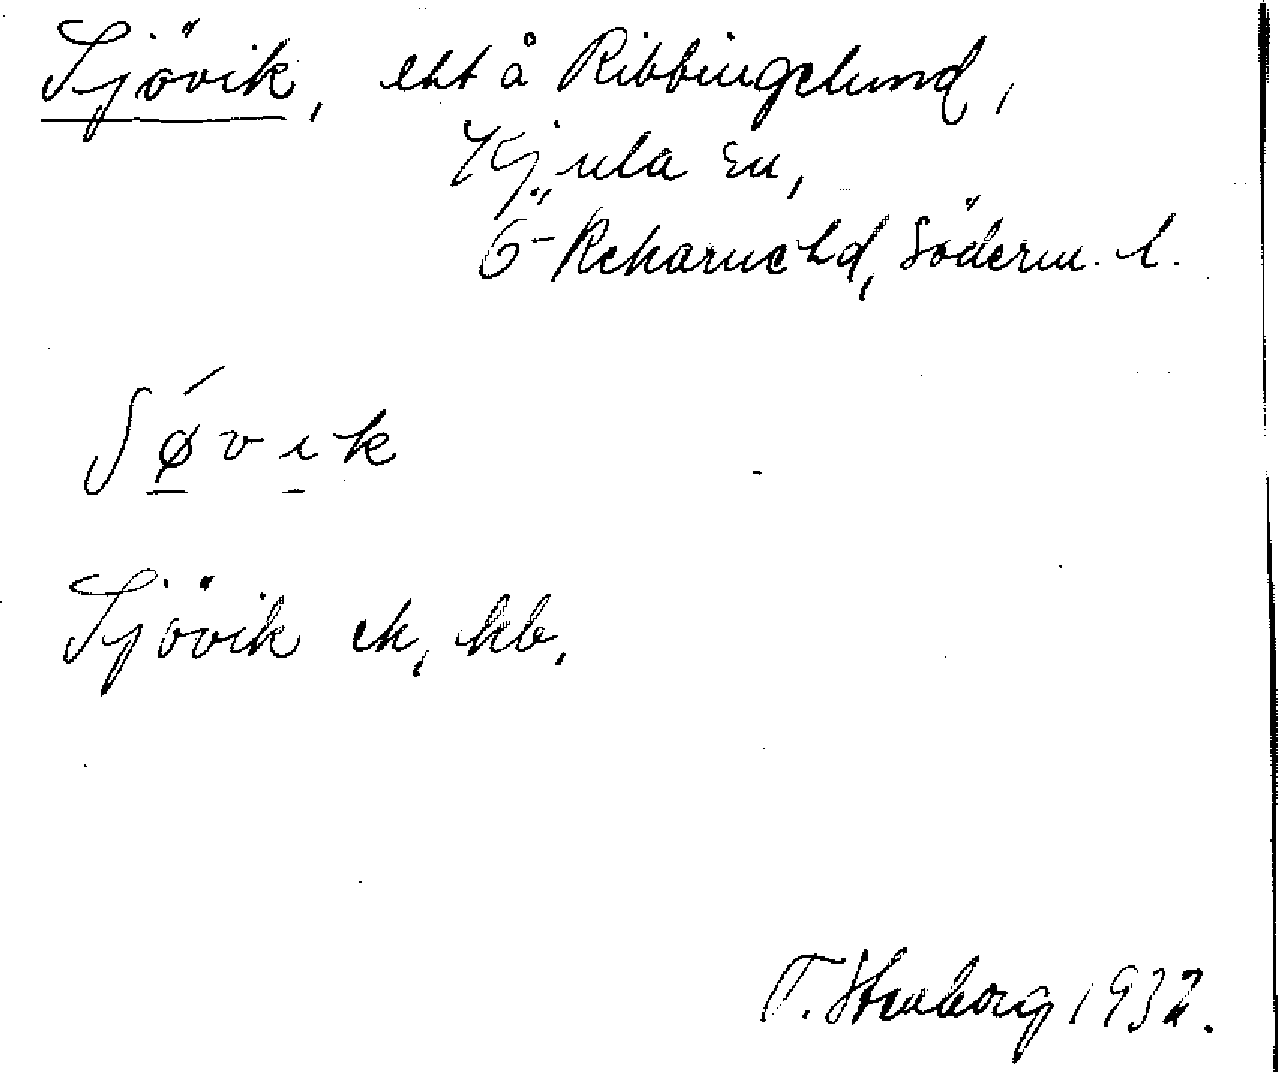 Sjövik, lht å Ribbingelund,
Kjula sn,
Ö-Rekarne hd, Söderm. l.
Søvik
Sjövik ek, kb.
T. Stenborg 1932.